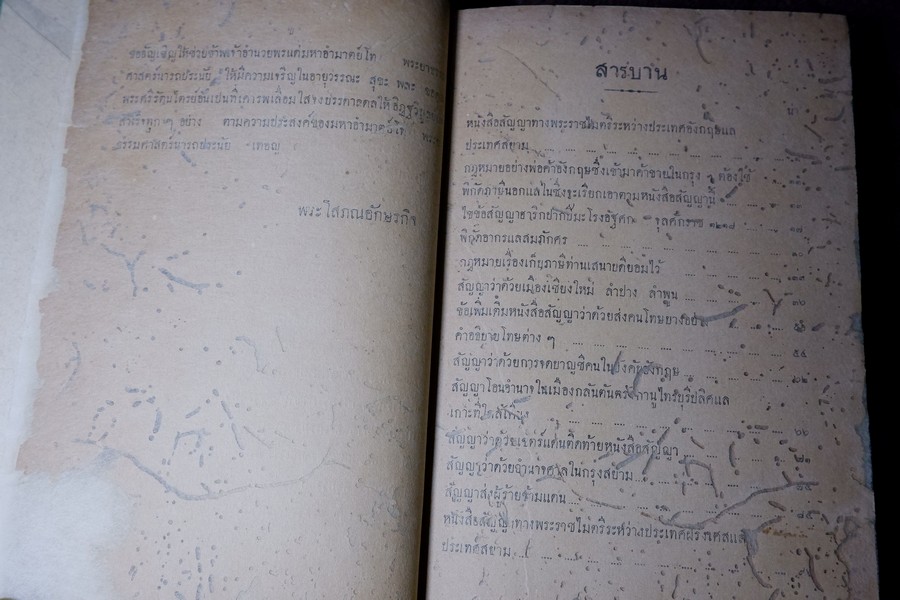 ขอรัญเชิญให้ช่วยข้าพเจ้าอำนวยพรแด่มหาอำมาตย์โท พระยา
ศาสตร์นารถประนัย ให้มีความเจริญในอายุวรรณะ สุขะ พละ
พระศรีรัตนไตรย์อันเปนที่เคารพเลื่อมใส
สำเร็จทุก ๆ อย่าง ตามความประสงค์ของมหาอำมาตย์โท
ธรรมศาสตร์นารถประนัย เทอญ
พระโสภณอักษรกิจ
สารบาน
น่า
หนังสือสัญญาทางพระราชไมตรีระหว่างประเทศอังกฤษแล
ประเทศสยาม
กฎหมายอย่างพ่อค้าอังกฤษซึ่งเข้ามาค้าขายในกรุง ฯ ต้องใช้
พิกัดภาษีนอกแลในซึ่งจะเรียกเอาตามหนังสือสัญญานี้
ใช้ข้อสัญญาฮารีกปากปีมะโรงอัฐศก จุลศักราช ๑๒๑๘ ๑๗
พิกัดอากรแลสมภักศร
กฎหมายเรื่องเก็บภาษีท่านเสนาบดียอมไว้
สัญญาว่าด้วยเมืองเชียงใหม่ ลำปาง ลำพูน ๓๖
ข้อเพิ่มเติมหนังสือสัญญาว่าด้วยส่งคนโทษบางอย่าง
คำอธิบายโทษต่าง ๆ ๕๔
สัญญาว่าด้วยการจดบาญชีคนในบังคับอังกฤษ ๖๒
สัญญาโอนอำนาจในเมืองกลันตันตรังกานูไทรบุรีปลิศแล
เกาะที่ใกล้เคียง
สัญญาว่าด้วยเขตร์แดนติดท้ายหนังสือสัญญา
สัญญาว่าด้วยอำนาจศาลในกรุงสยาม
สัญญาส่งผู้ร้ายข้ามแดน
หนังสือสัญญาทางพระราชไมตรีระหว่างประเทศฝรั่งเศสแล
ประเทศสยาม